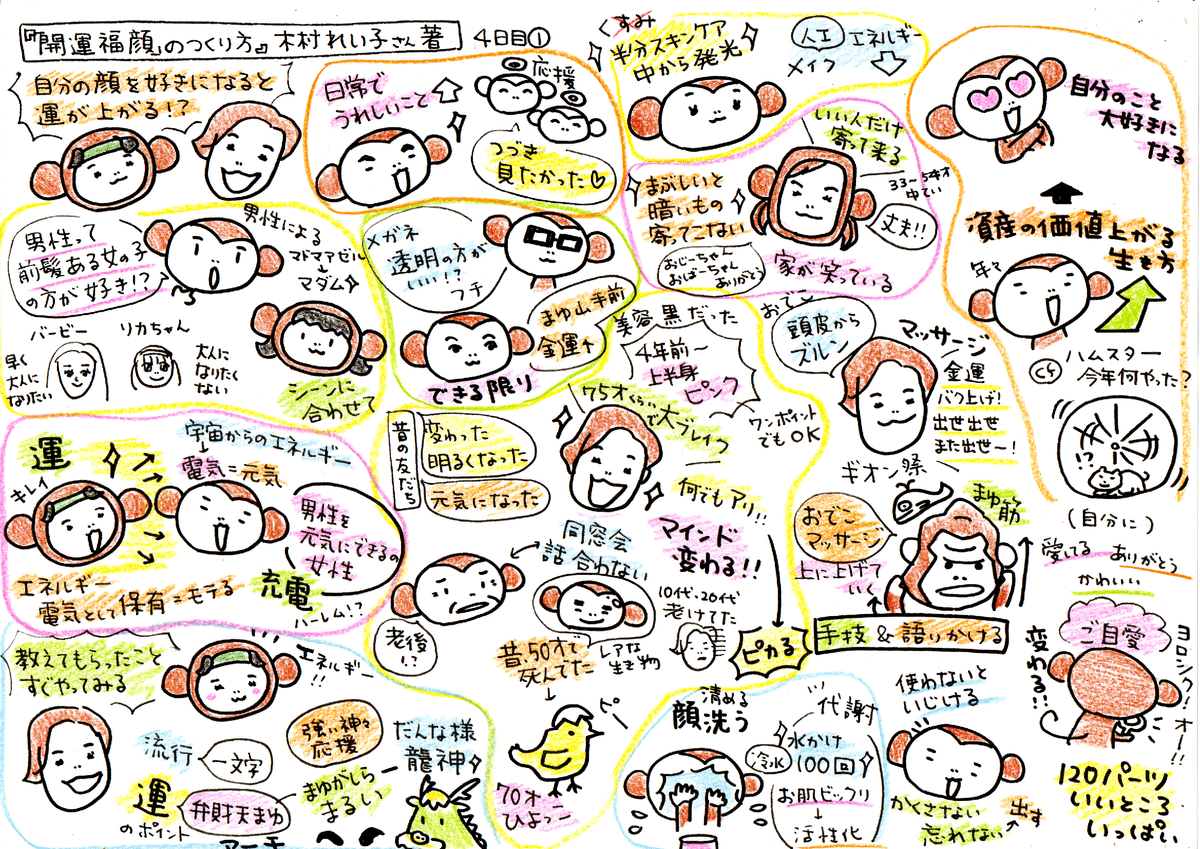 『「開運福顔」のつくり方』木村れい子さん著
4日目①
自分の顔を好きになると
運が上がる!?
日常で
うれしいこと
応援
つづき
見たかった♡
くすみ
半分スキンケア
中から発光
人工
エネルギー
メイク
自分のこと
大好きに
なる
資産の価値上がる
生き方
年々
ハムスター
今年何やった?
!?
男性って
前髪ある女の子
の方が好き!?
男性による
マドマアゼル
マダム
バービー
早く
大人に
なりたい
リカちゃん
大人に
なりたく
ない
シーンに
合わせて
メガネ
透明の方が
いい!?
フチ
まゆ山手前
金運↑
できる限り
いいんだけ
寄って来る
まぶしいと
暗いもの
寄ってこない
33〜54才
丈夫!!
おじーちゃん
おばーちゃん
ありがとう
家が笑っている
美容 黒だった
4年前〜
上半身
ピンク
75才くらいで大ブレイク
ワンポイント
でもOK
何でもアリ!!
マインド
変わる!!
おでこ
頭皮から
ズルン
マッサージ
金運
バク上げ!
出せ出せ
また出せ〜!
ギオン祭
まゆ筋
おでこ
マッサージ
上に上げて
いく
手技&語りかける
(自分に)
愛してる
ありがとう
かわいい
ご自愛
変わる!!
ヨロシク!オー!!
120パーツ
いいところ
いっぱい
運
キレイ
宇宙からのエネルギー
電気=元気
男性を
元気にできるの
女性
充電
ハーレム!?
エネルギー
電気として保有=モテる
昔の友だち
変わった
明るくなった
元気になった
同窓会
話合わない
老後
!?
昔、50才で
死んでた
レアな
生き物
10代、20代
老けてた
ピカる
70才
ひよっこ
ピー
教えてもらったこと
すぐやってみる
エネルギー
!!
流行
一文字
運
のポイント
弁財天まゆ
アーチ
強い神々
応援
まゆがしら
まるい
だんな様
龍神
清める
顔洗う
代謝
冷水
水かけ
100回
お肌ビックリ
活性化
使わないと
いじける
かくさない
忘れない
出す